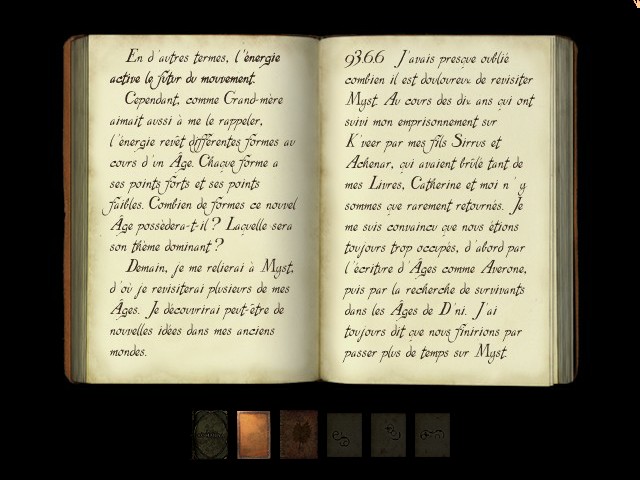 En d'autres termes, l'énergie
active le futur du mouvement.
Cependant, comme Grand-mère
aimait aussi à me le rappeler,
l'énergie revêt différentes formes au
cours d'un Âge. Chaque forme a
ses points forts et ses points
faibles. Combien de formes ce nouvel
Âge possèdera-t-il ? Laquelle sera
son thème dominant ?
Demain, je me relierai à Myst,
d'où je revisiterai plusieurs de mes
Âges. Je découvrirai peut-être de
nouvelles idées dans mes anciens
mondes.
93.6.6 J'avais presque oublié
combien il est douloureux de revisiter
Myst. Au cours des dix ans qui ont
suivi mon emprisonnement sur
K'veer par mes fils Sirrus et
Achenar, qui avaient brûlé tant de
mes Livres, Catherine et moi n'y
sommes que rarement retournés. Je
me suis convaincu que nous étions
toujours trop occupés, d'abord par
l'écriture d'Âges comme Averone,
puis par la recherche de survivants
dans les Âges de D'ni. J'ai
toujours dit que nous finirions par
passer plus de temps sur Myst